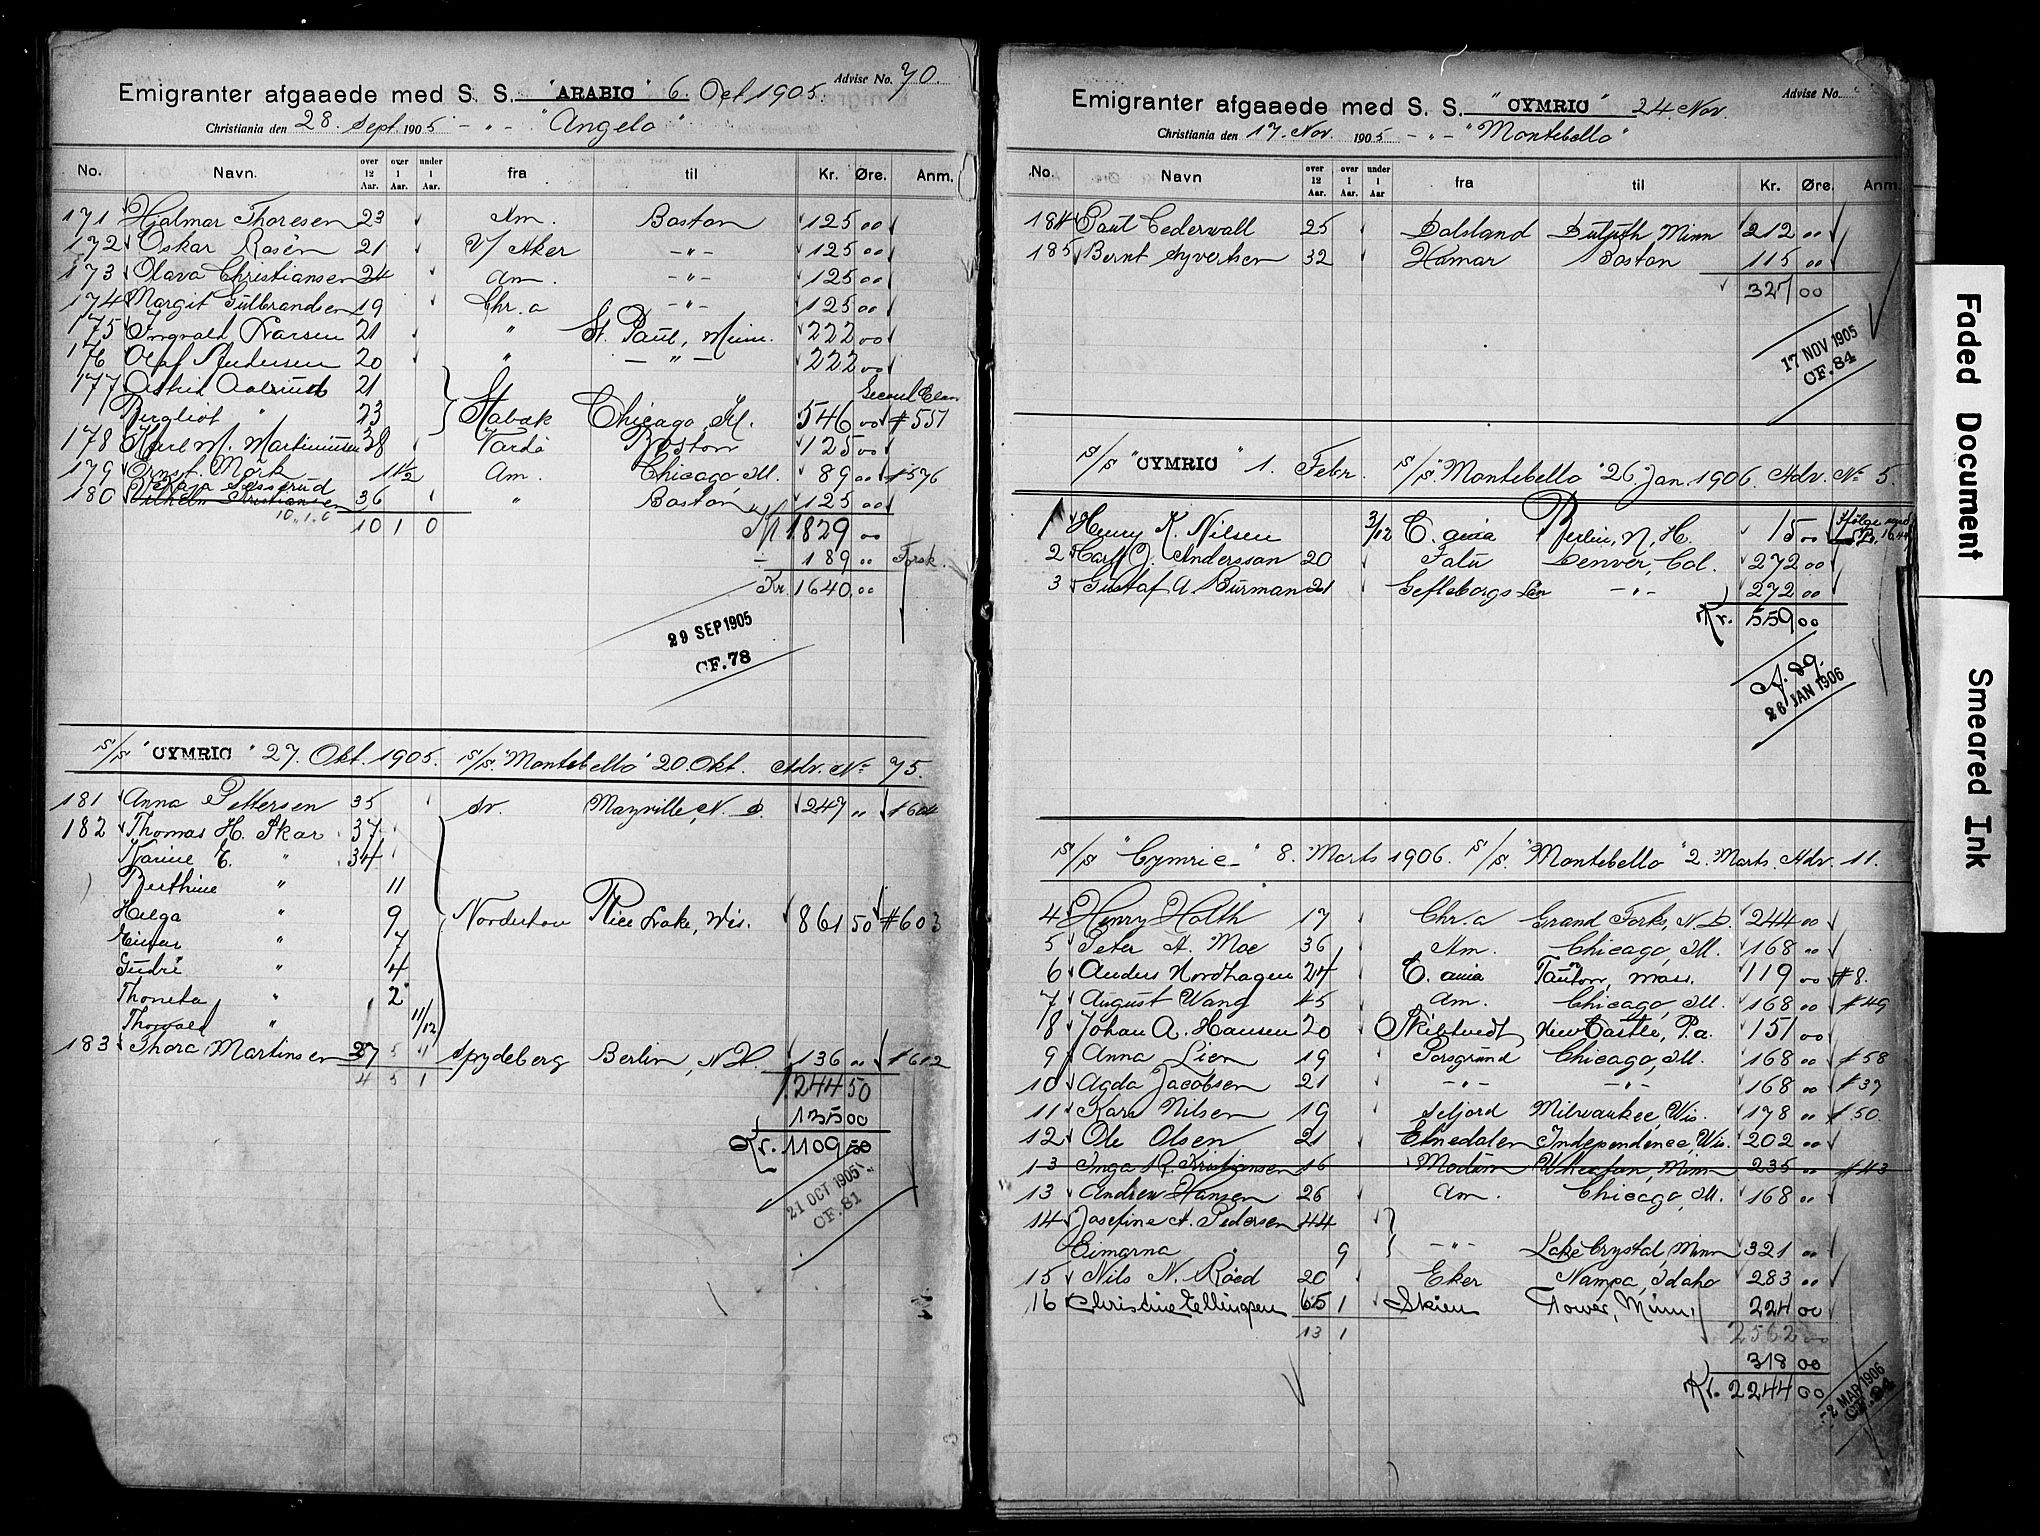 Advise No. 70.
Emigranter afgaaede med S. S. "ARABIC" 6. Oct 1905.
Christiania den 28 Sept 1905 - „ - "Angelo"
No. Navn. over 12 Aar. over 1 Aar. under 1 Aar. fra til Kr. Øre. Anm.
171 Hjalmar Thoresen 23 Am. Boston 125 00
172 Oskar Rosén 21 V/ Aker -„- 125 00
173 Olava Christiansen 24 Am. -„- 125 00
174 Margit Gulbrandsen 19 Chr.a -„- 125 00
175 Ingvald Larsen 21 " St. Paul, Minn. 222 00
176 Olaf Andersen 20 " - „ - 222 00
177 Astrid Aalrud 21 Second Class
Bergliot " 23 Stabæk Chicago, Ill. 546 00 #551
178 Karl M. Martiniusen 38 Vardö Boston 125 00
179 Ernst Mörk 11 1/2 Am. Chicago, Ill. 89 00 #576
180 Vilhelm Kristiansen 36 " Boston 125 00
10 „ 1 „ 0
10 1 0 1829 00
÷ 189 00 Forsk.
Kr. 1640 00
29 SEP 1905
CF. 78
S/S "CYMRIC" 27. Okt. 1905. S/S. "Montebello" 20. Okt. Adv. No 75.
181 Anna Pettersen 35 Dr. Mayville, N. D. 247 „ #604
182 Thomas H. Skar 37
Karine E. " 34
Berthine " 11
Helga " 9 Norderhov Rice Lake, Wis. 861 50 #603
Einar " 7
Gudri " 4
Thonetta " 2
Thorvald " 11/12
183 Thora Martinsen 37 Spydeberg Berlin, N.H. 136 00 #612
4 5 1 1244 50
135 00
Kr. 1109 50
21 OCT 1905
CF. 81
Advise No.
Emigranter afgaaede med S. S. "CYMRIC" 24. Nov.
Christiania den 17. Nov. 1905 - „ - "Montebello"
No. Navn over 12 Aar. over 1 Aar. under 1 Aar fra til Kr. Øre. Anm.
184 Paul Cedervall 25 Dalsland Duluth Minn 212 00
185 Bernt Syvertsen 32 Hamar Boston 115 00
327 00
17 NOV 1905
CF. 84
S/S "CYMRIC" 1. Febr. S/S. "Montebello" 26 Jan. 1906. Adv. No 5.
1 Henry K. Nilsen 3/12 C. ania Berlin, N. H. 15 00
2 Carl J. Andersson 20 Falu Denver, Col. 272 00
3 Gustaf A. Burman 21 Gefleborgs Län -„- 272 00
Kr. 559 00
26 JAN 1906
S/S "Cymric" 8. Marts 1906. S/S. "Montebello" 2. Marts. Adv. 11.
4 Henry Holth 17 Chr.a Grand Forks, N.D. 244 00
5 Peter A. Moe 36 Am. Chicago, Ill. 168 00
6 Anders Nordhagen 24 C. ania Taunton, Mass. 119 00 #8.
7 August Wang 45 Am. Chicago, Ill. 168 00 #49
8 Johan A. Hansen 20 Skibtvedt New Castle, P.a. 151 00
9 Anna Lien 19 Porsgrund Chicago, Ill. 168 00 #58
10 Agda Jacobsen 21 -„- -„- 168 00 #37
11 Kari Nilsen 19 Seljord Milwaukee, Wis. 178 „ #50
12 Ole Olsen 21 Etnedalen Independence, Wis. 202 00
13 Inga R. Kristiansen 16 Modum Wheaton, Minn 235 00 #43
13 Andrew Hansen 26 Am. Chicago, Ill. 168 00
14 Josefine A. Pedersen 44
Eimarna " 9 -„- Lake Crystal, Minn 321 00
15 Nils N. Röed 20 Eker Nampa, Idaho 283 00
16 Christine Ellingsen 65 1 Skien Tower, Minn 224 00
13 1 2562 00
318 00
Kr. 2244 00
-2 MAR 1906
Faded Document
Smeared Ink